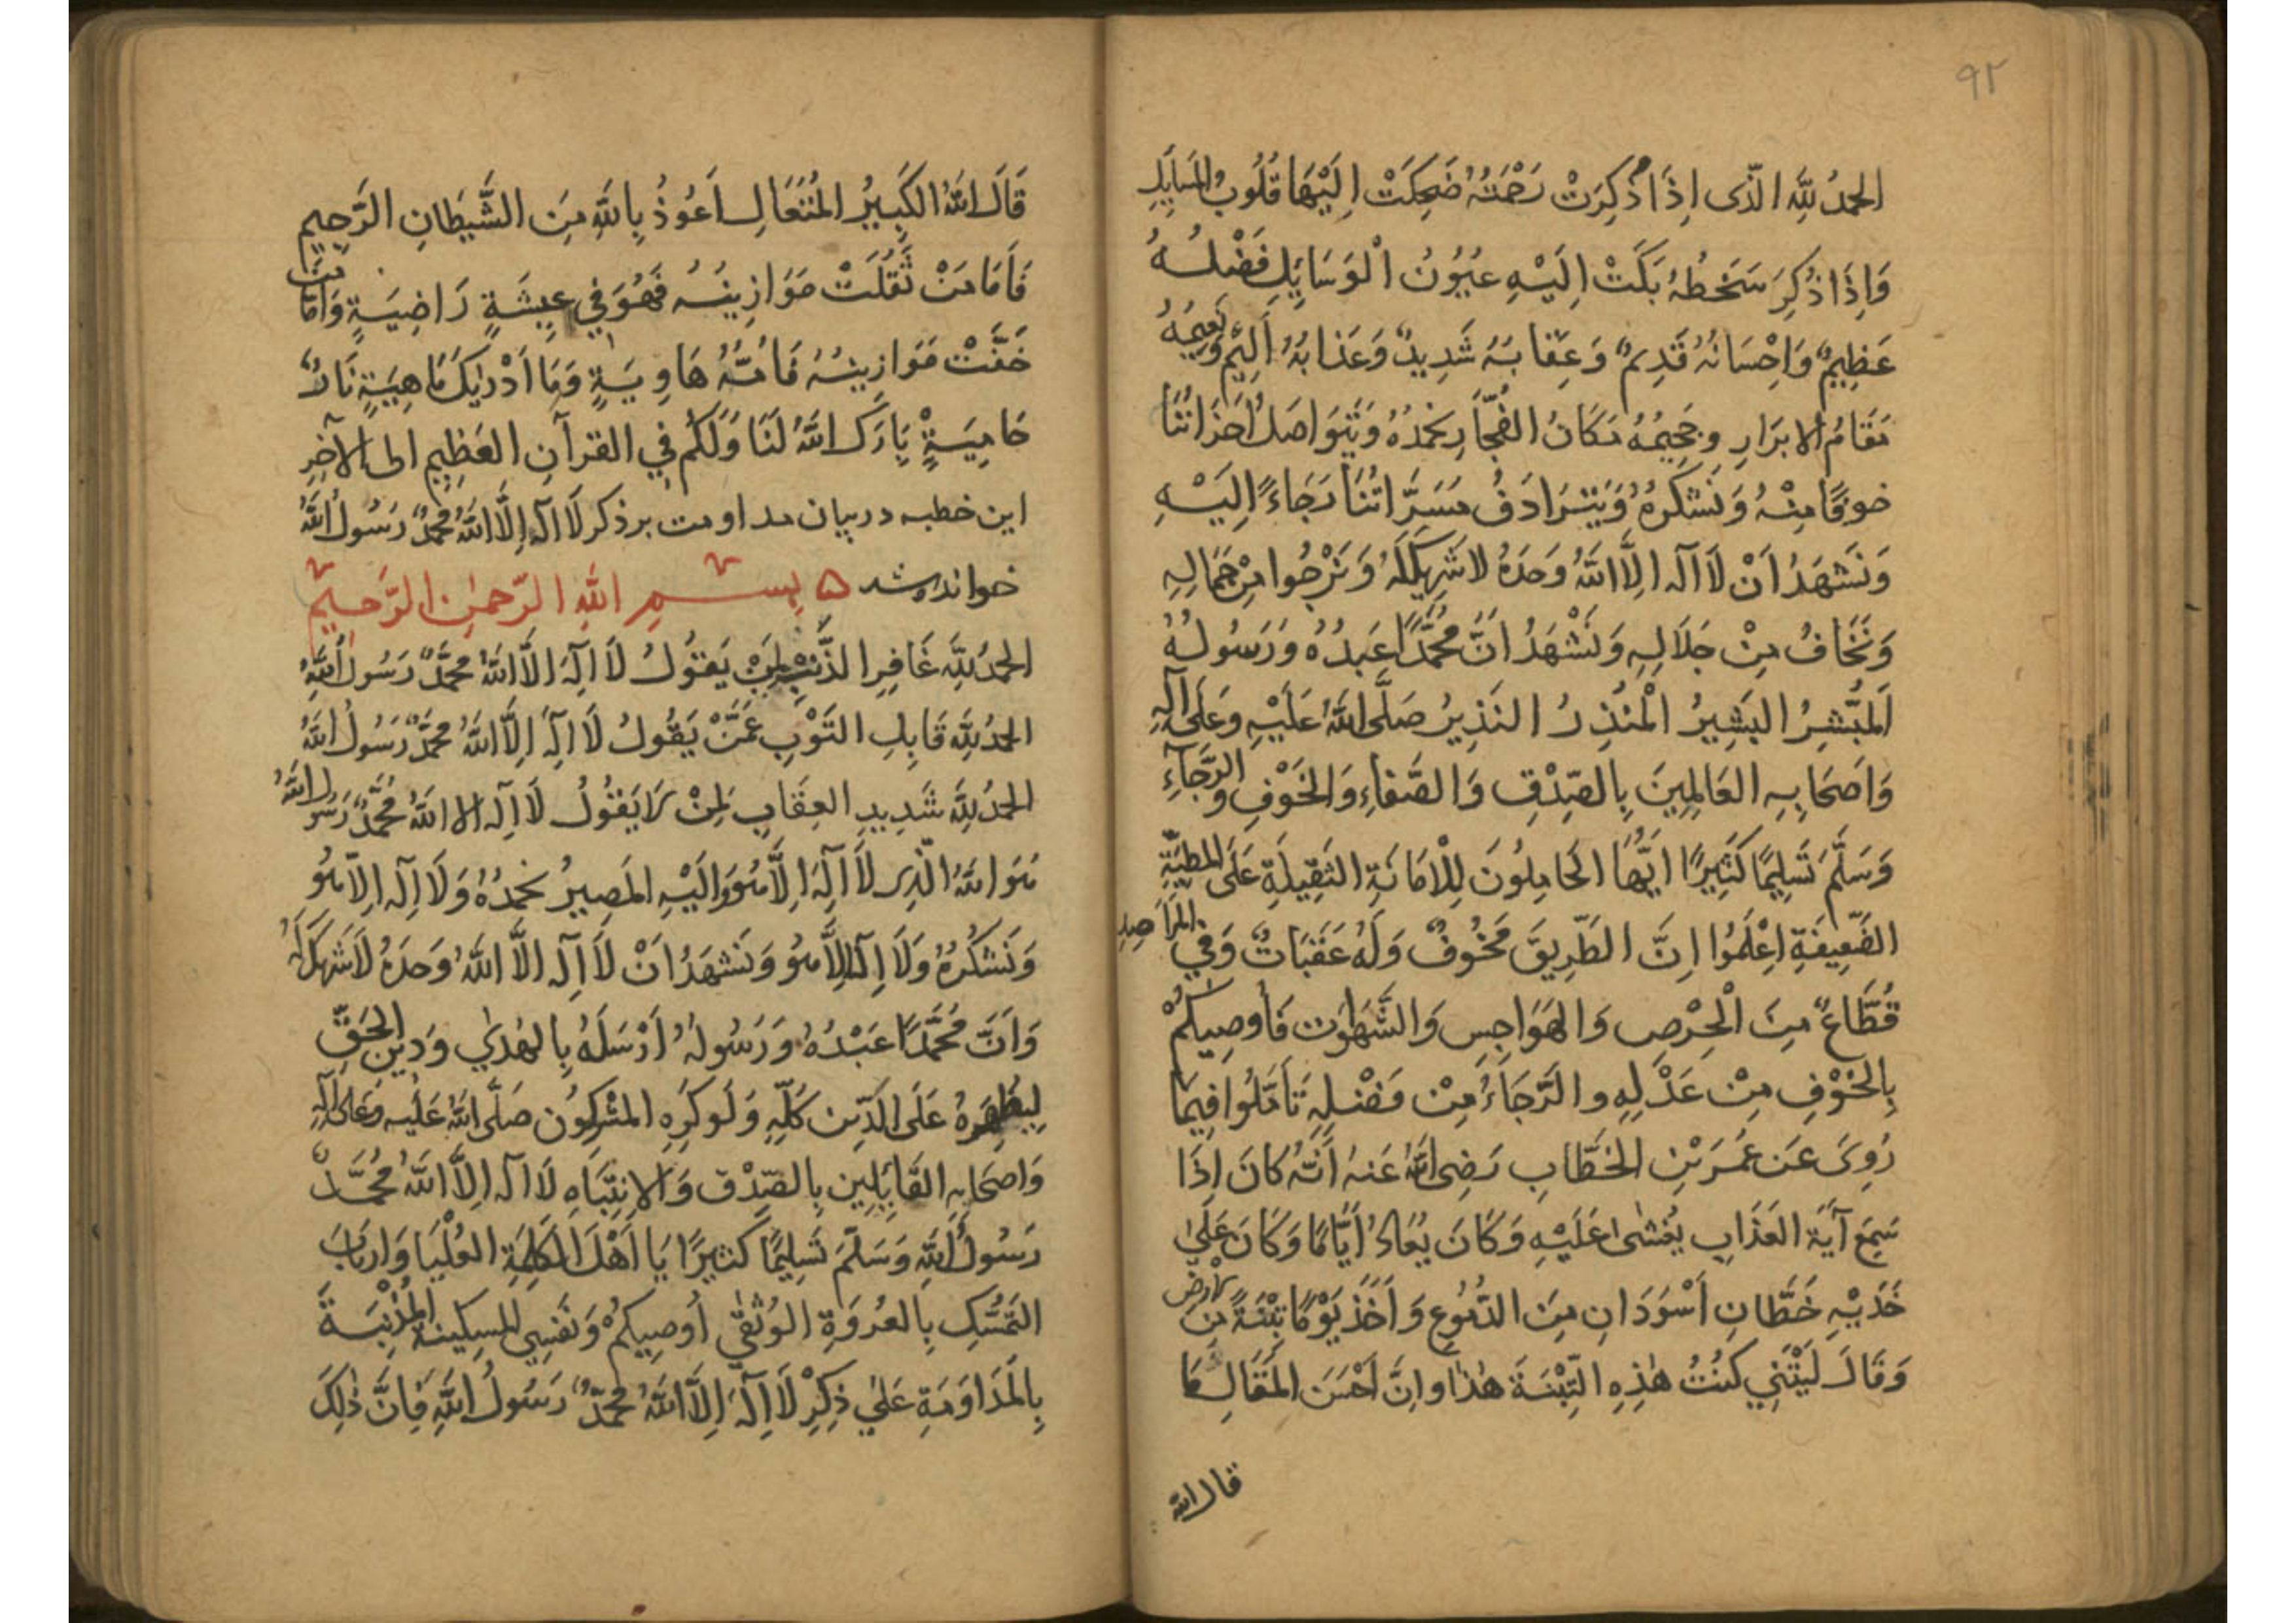 ٩٢
الحمدُ لِلّٰهِ الَّذى اِذَا ذُكِرَتْ رَحْمَتُهُ ضَحِكَتْ اِلَيْهَا قُلُوبُ المَسَايِلِ
وَاِذَا ذُكِرَ سَخَطُهُ بَكَتْ اِلَيْهِ عُيُونُ الْوَسَايِلِ فَضْلُهُ
عَظِيمٌ وَاِحْسَانُهُ قَدِيمٌ وَعِقَابَهُ شَدِيدٌ وَعَذَابُهُ اَلِيمٌ وَنَعِيمُهُ
مَقَامُ الابرَارِ وجَحِيمُهُ مَكَانُ الفُجَّارِ نحمَدُهُ وَيَتَوَاصَلُ اَحزَانُنَا
خوفًا مِنْهُ وَنَشكُرهُ وَيَتَرَادَفُ مَسَرَّاتُنَا رَجَاءً اِلَيْهِ
وَنَشهَدُ اَنْ لَا اَلٰه اِلَّا اللهُ وَحدَهُ لا شَرِيكَ لَهُ وَنَرْجُوا مِنْ جَمَالِهِ
وَنَخَافُ مِنْ جَلَالِهِ وَنَشْهَدُ اَنَّ مُحَمَّدًا عَبدُهُ وَرَسُولُهُ
اَلمُبَشِّرُ البَشِيرُ الْمُنْذِرُ النَذِيرُ صَلَّى اللهُ عَلَيْهِ وَعَلَى آلِهِ
وَاَصحَابِهِ العَالِمِينَ بِالصِّدْقِ وَالصَّفَاءِ وَالخَوْفِ وَالرَّجَآءِ
وَسَلَّمَ تَسْلِيمًا كَثِيرًا اَيُّهَا الحَامِلُونَ لِلْامَانَةِ الثَقِيلَةِ عَلَى المَطِيَّةِ
الضَّعِيفَةِ اِعْلَمُوا اِنَّ الطَّرِيقَ مَخُوفٌ وَلَهُ عَقَبَاتٌ وَفِي المَرَاصِدِ
قُطَّاعٌ مِنَ الْحِرْصِ وَالهَوَاجِسِ وَالشَّهَوٰت فَاُوصِيكُمْ
بِالخَوْفِ مِنْ عَدْلِهِ والرَّجَاءِ مِنْ فَضْلِهِ تَأَمَّلُوا فِيمَا
رُوِىَ عَن عُمَرَ بْنِ الخَطَّابِ رَضِىَ اللهُ عَنهُ اَنَّهُ كَانَ اِذَا
سَمِعَ آيَةَ العَذَابِ يُغشىٰ عَلَيْهِ وَكَانَ يُعَادُ اَيَّامًا وَكَانَ عَلَىٰ
خَدَيْهِ خَطَّانِ اَسْوَدَانِ مِنَ الدُّمُوعِ وَاَخَذَ يَوْمًا تِبْنَةً مِنَ الارض
وَقَالَ لَيْتَنِي كُنْتُ هٰذِهِ التِّبْنَةَ هٰذا واِنَّ اَحْسَنَ المَقَالِ مَا
قال الله
قَالَ اللهُ الكَبِيرُ المُتَعَالِ اَعُوذُ بِاللهِ مِنَ الشَّيطَانِ الرَّجِيمِ
فَاَمَا مَنْ ثَقُلَتْ مَوَازِينُهُ فَهُوَ فِي عِيشَةٍ رَاضِيَةٍ وَاَمَّا مَنْ
خَفَّتْ مَوَازِينُهُ فَاُمُّهُ هَاوِيَةٍ وَمَا اَدْرٰيكَ مَا هِيَةٍ نَارٌ
حَامِيَةٍ بَارَكَ اللهُ لَنَا وَلَكُم فِي القرآنِ العَظِيمِ الى الآخِرِ
این خطبه در بیان مداومت بر ذکر لَا اِلٰهَ اِلَّا اللهُ مُحَمَّدٌ رَسُولُ اللهِ
خوانده شد ۵ بِسْمِ اللهِ الرَّحمٰنِ الرَّحِيمِ
الحمدُ لِلّٰهِ غَافِرِ الذَّنْبِ لِمَنْ يَقُولُ لَا اِلٰهَ اِلَّا اللهُ محمَّدٌ رَسُولُ اللهِ
الحمدُ لِلّٰهِ قَابِلِ التَوْبِ عَمَّنْ يَقُولُ لَا اِلٰهَ اِلَّا اللهُ محمَّدٌ رَسُولُ اللهِ
الحمدُ لِلّٰهِ شَدِيدِ العِقَابِ لِمَنْ لَا يَقُولُ لَا اِلٰه الا اللهُ مُحَمَّدٌ رَسُولُ اللهِ
هُوَ اللهُ الَّذِى لَا اِلٰهَ اِلَّا هُوَ وَاِلَيْهِ المَصِيرُ نحمَدُهُ وَلَا اِلٰه اِلَّا هُو
وَنَشكُرُهُ وَلَا اِلٰهَ اِلَّا هُو وَنَشهَدُ اَنْ لَا اِلٰه اِلَّا اللهُ وَحدَهُ لَا شَرِيكَ لَهُ
وَاَنَّ مُحَمَّدًا عَبْدُهُ وَرَسُولهُ اَرْسَلَهُ بِالهُدىٰ وَدِينِ الحَقِّ
لِيُظهِرهُ عَلَى الدِّينِ كُلِّهِ وَلَو كَرِهَ المُشْرِكُون صَلَّى اللهُ عَلَيهِ وَعَلَى آلِهِ
وَاَصحَابِهِ القَايِلِين بِالصِّدْق وَالاِنْتِبَاهِ لَا اِلٰه اِلَّا اللهُ مُحَمَّدٌ
رَسُولُ اللهِ وَسَلَّمَ تَسْلِيمًا كَثِيرًا يَا اَهْلَ الكَلِمَةِ العُلْيَا وَاَربَابَ
التَمَسُّكِ بِالعُروَةِ الوُثْقىٰ اُوصِيكُم وَنَفسِي المِسكِينَةَ المُذْنِبَةَ
بِالمُدَاوَمَةِ عَلىٰ ذِكْرِ لَا اِلٰهَ اِلَّا اللهُ مُحَمَّدٌ رَسُولُ اللهِ فَاِنَّ ذٰلِكَ